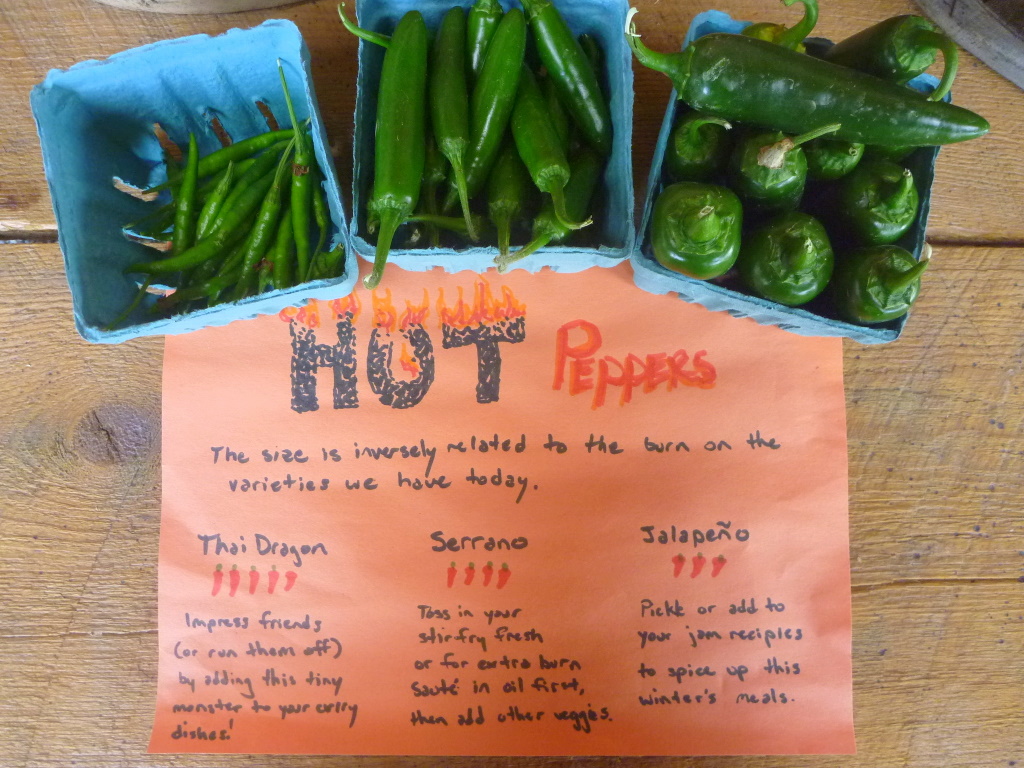 HOT PEPPERS
The size is inversely related to the burn on the
varieties we have today.
Thai Dragon
Impress friends
(or run them off)
by adding this tiny
monster to your curry
dishes!
Serrano
Toss in your
stirfry fresh
or for extra burn
sauté in oil first,
then add other veggies.
Jalapeño
Pickle or add to
your jam reciples
to spice up this
winter's meals.